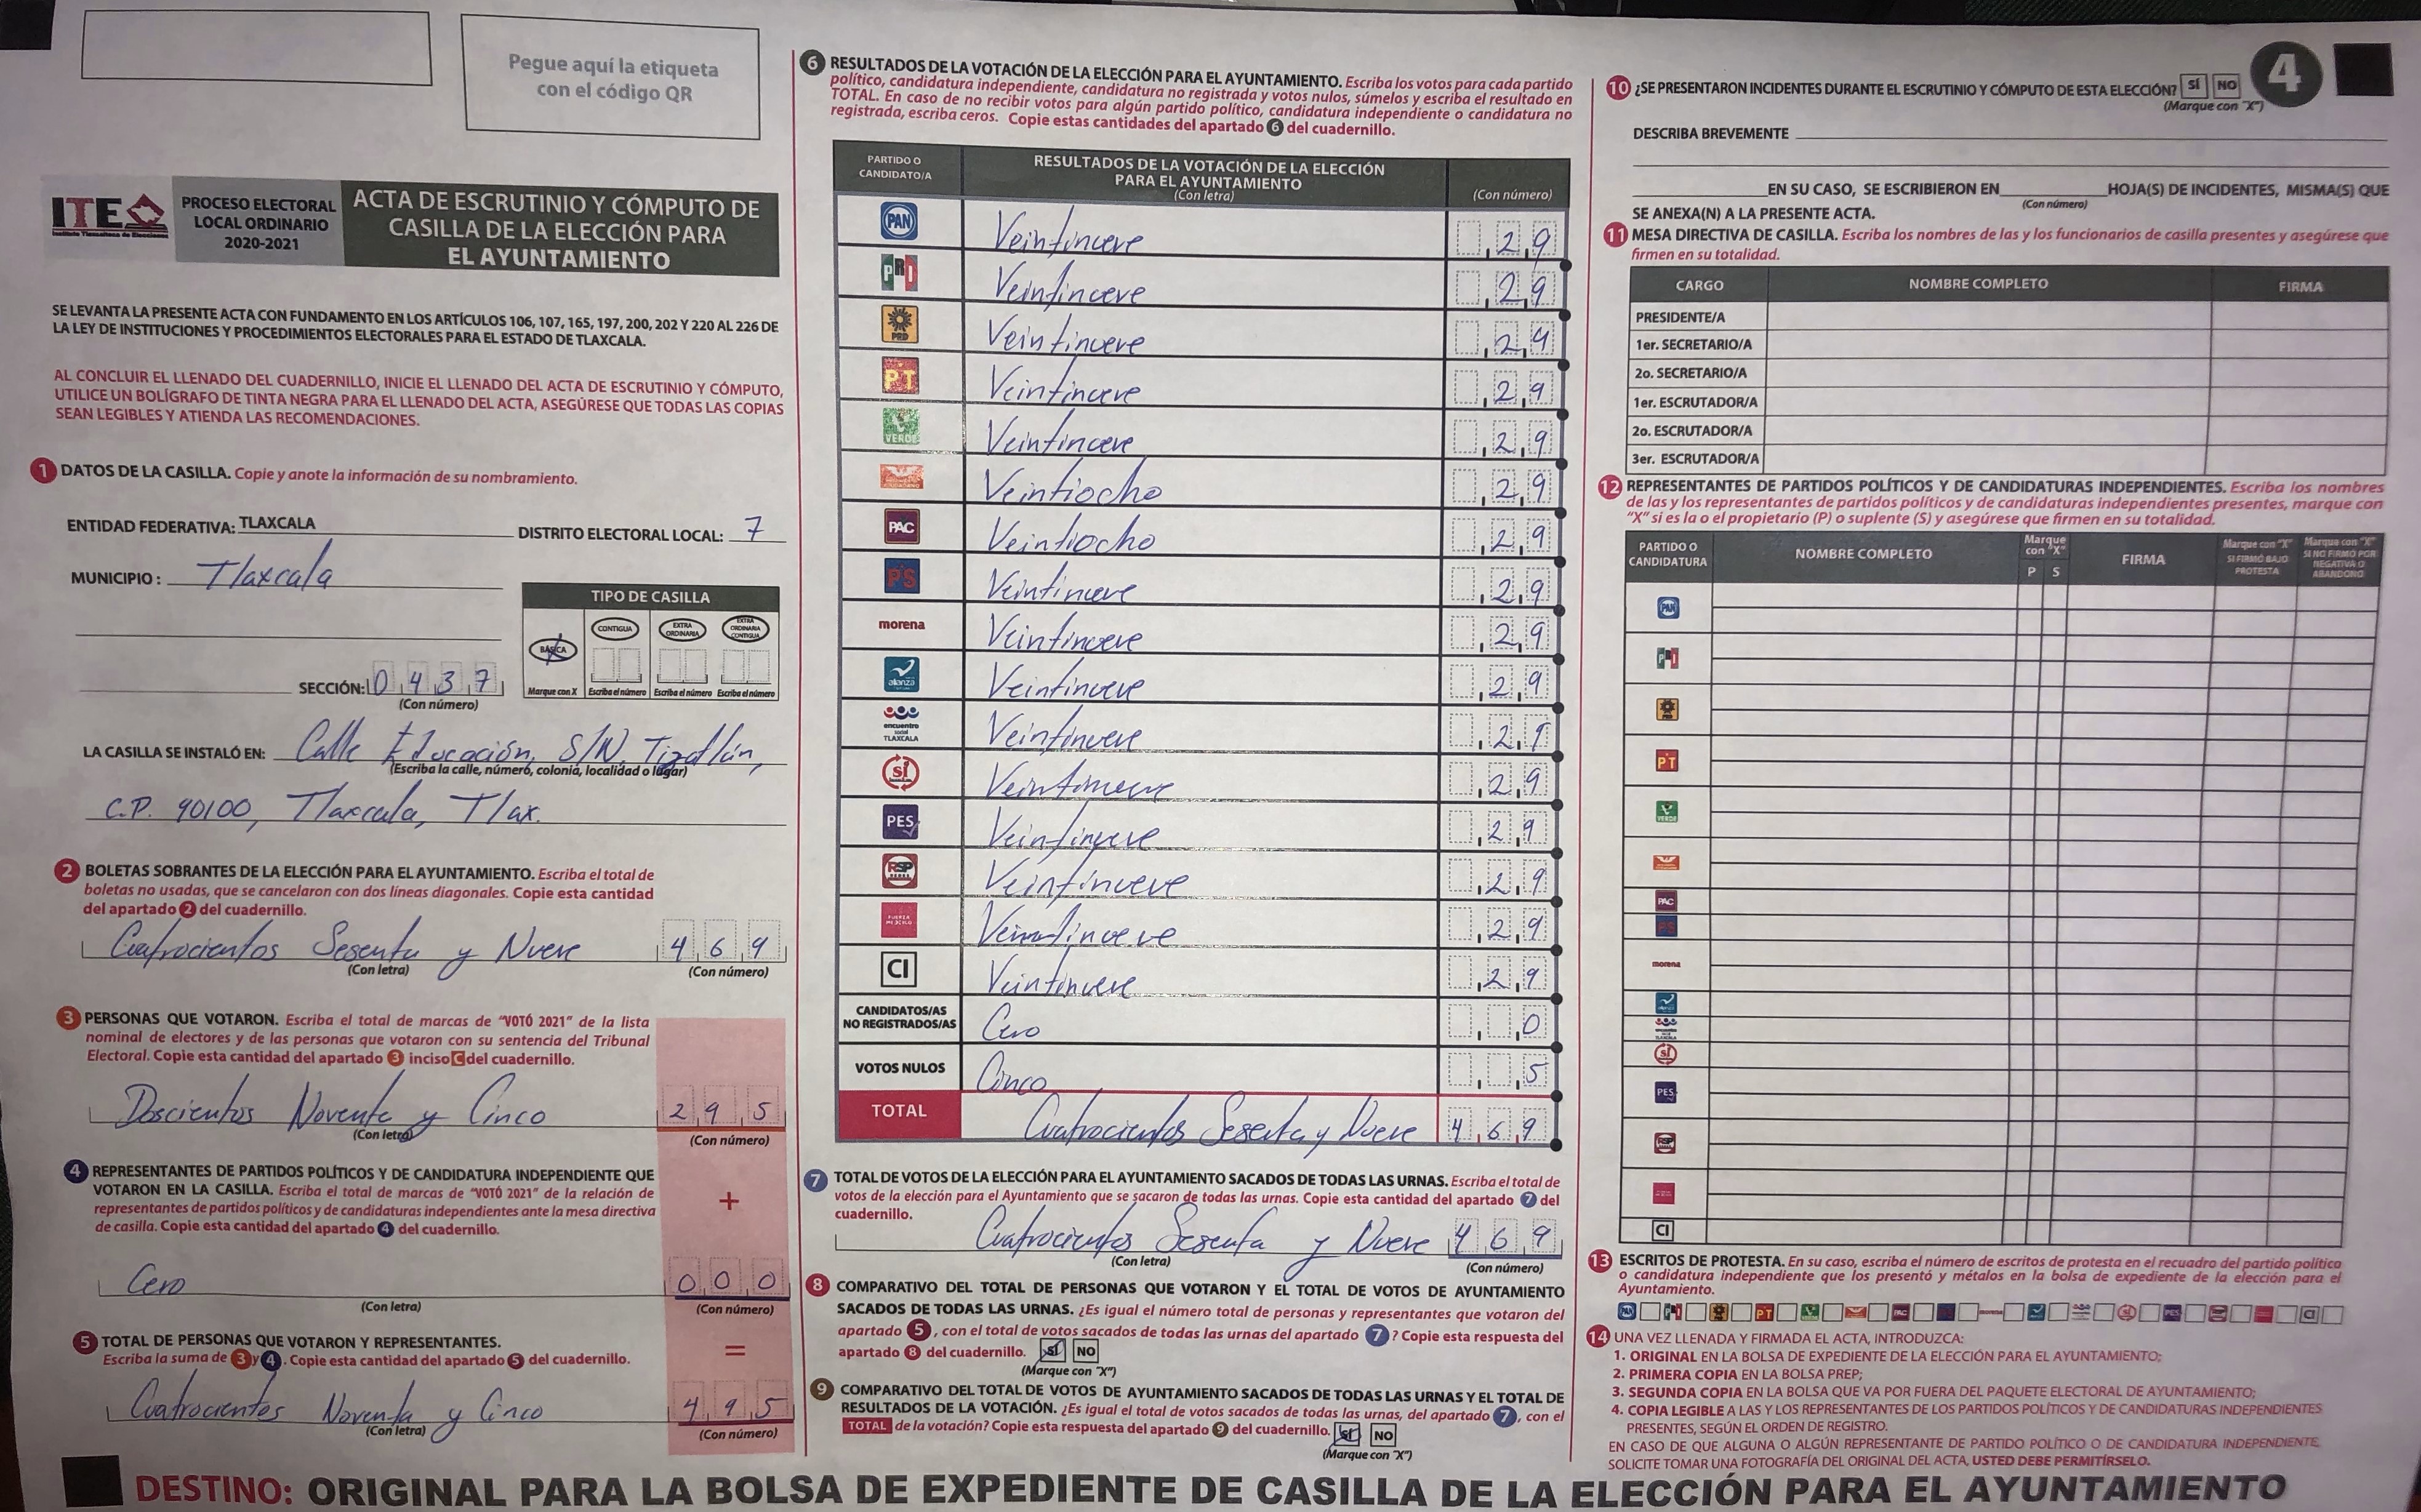 Pegue aquí la etiqueta
con el código QR
ITE
Instituto Tlaxcalteca de Elecciones
PROCESO ELECTORAL
LOCAL ORDINARIO
2020-2021
ACTA DE ESCRUTINIO Y CÓMPUTO DE
CASILLA DE LA ELECCIÓN PARA
EL AYUNTAMIENTO
SE LEVANTA LA PRESENTE ACTA CON FUNDAMENTO EN LOS ARTÍCULOS 106, 107, 165, 197, 200, 202 Y 220 AL 226 DE
LA LEY DE INSTITUCIONES Y PROCEDIMIENTOS ELECTORALES PARA EL ESTADO DE TLAXCALA.
AL CONCLUIR EL LLENADO DEL CUADERNILLO, INICIE EL LLENADO DEL ACTA DE ESCRUTINIO Y CÓMPUTO,
UTILICE UN BOLÍGRAFO DE TINTA NEGRA PARA EL LLENADO DEL ACTA, ASEGÚRESE QUE TODAS LAS COPIAS
SEAN LEGIBLES Y ATIENDA LAS RECOMENDACIONES.
1 DATOS DE LA CASILLA. Copie y anote la información de su nombramiento.
ENTIDAD FEDERATIVA: TLAXCALA DISTRITO ELECTORAL LOCAL: 7
MUNICIPIO: Tlaxcala
TIPO DE CASILLA
BÁSICA CONTIGUA EXTRA ORDINARIA EXTRA ORDINARIA CONTIGUA
Marque con X Escriba el número Escriba el número Escriba el número
SECCIÓN: 0437
(Con número)
LA CASILLA SE INSTALÓ EN: Calle Educación, S/N, Tizatlán,
(Escriba la calle, número, colonia, localidad o lugar)
C.P. 90100, Tlaxcala, Tlax.
2 BOLETAS SOBRANTES DE LA ELECCIÓN PARA EL AYUNTAMIENTO. Escriba el total de
boletas no usadas, que se cancelaron con dos líneas diagonales. Copie esta cantidad
del apartado 2 del cuadernillo.
Cuatrocientos Sesenta y Nueve 469
(Con letra) (Con número)
3 PERSONAS QUE VOTARON. Escriba el total de marcas de "VOTÓ 2021" de la lista
nominal de electores y de las personas que votaron con su sentencia del Tribunal
Electoral. Copie esta cantidad del apartado 3 inciso C del cuadernillo.
Doscientos Noventa y Cinco 295
(Con letra) (Con número)
4 REPRESENTANTES DE PARTIDOS POLÍTICOS Y DE CANDIDATURA INDEPENDIENTE QUE
VOTARON EN LA CASILLA. Escriba el total de marcas de "VOTÓ 2021" de la relación de
representantes de partidos políticos y de candidaturas independientes ante la mesa directiva
de casilla. Copie esta cantidad del apartado 4 del cuadernillo.
+
Cero 000
(Con letra) (Con número)
5 TOTAL DE PERSONAS QUE VOTARON Y REPRESENTANTES.
Escriba la suma de 3 y 4. Copie esta cantidad del apartado 5 del cuadernillo.
=
Cuatrocientos Noventa y Cinco 495
(Con letra) (Con número)
6 RESULTADOS DE LA VOTACIÓN DE LA ELECCIÓN PARA EL AYUNTAMIENTO. Escriba los votos para cada partido
político, candidatura independiente, candidatura no registrada y votos nulos, súmelos y escriba el resultado en
TOTAL. En caso de no recibir votos para algún partido político, candidatura independiente o candidatura no
registrada, escriba ceros. Copie estas cantidades del apartado 6 del cuadernillo.
PARTIDO O CANDIDATO/A RESULTADOS DE LA VOTACIÓN DE LA ELECCIÓN PARA EL AYUNTAMIENTO (Con letra) (Con número)
PAN Veintinueve 29
PRI Veintinueve 29
PRD Veintinueve 29
PT Veintinueve 29
VERDE Veintinueve 29
Veintiocho 29
PAC Veintiocho 29
PS Veintinueve 29
morena Veintinueve 29
alianza Veintinueve 29
encuentro social TLAXCALA Veintinueve 29
sí Veintinueve 29
PES Veintinueve 29
RSP Veintinueve 29
FUERZA MÉXICO Veintinueve 29
CI Veintinueve 29
CANDIDATOS/AS NO REGISTRADOS/AS Cero 0
VOTOS NULOS Cinco 5
TOTAL Cuatrocientos Sesenta y Nueve 469
7 TOTAL DE VOTOS DE LA ELECCIÓN PARA EL AYUNTAMIENTO SACADOS DE TODAS LAS URNAS. Escriba el total de
votos de la elección para el Ayuntamiento que se sacaron de todas las urnas. Copie esta cantidad del apartado 7 del
cuadernillo.
Cuatrocientos Sesenta y Nueve 469
(Con letra) (Con número)
8 COMPARATIVO DEL TOTAL DE PERSONAS QUE VOTARON Y EL TOTAL DE VOTOS DE AYUNTAMIENTO
SACADOS DE TODAS LAS URNAS. ¿Es igual el número total de personas y representantes que votaron del
apartado 5, con el total de votos sacados de todas las urnas del apartado 7? Copie esta respuesta del
apartado 8 del cuadernillo. SÍ NO
(Marque con "X")
9 COMPARATIVO DEL TOTAL DE VOTOS DE AYUNTAMIENTO SACADOS DE TODAS LAS URNAS Y EL TOTAL DE
RESULTADOS DE LA VOTACIÓN. ¿Es igual el total de votos sacados de todas las urnas, del apartado 7, con el
TOTAL de la votación? Copie esta respuesta del apartado 9 del cuadernillo. SÍ NO
(Marque con "X")
4
10 ¿SE PRESENTARON INCIDENTES DURANTE EL ESCRUTINIO Y CÓMPUTO DE ESTA ELECCIÓN? SÍ NO
(Marque con "X")
DESCRIBA BREVEMENTE
EN SU CASO, SE ESCRIBIERON EN HOJA(S) DE INCIDENTES, MISMA(S) QUE
(Con número)
SE ANEXA(N) A LA PRESENTE ACTA.
11 MESA DIRECTIVA DE CASILLA. Escriba los nombres de las y los funcionarios de casilla presentes y asegúrese que
firmen en su totalidad.
CARGO NOMBRE COMPLETO FIRMA
PRESIDENTE/A
1er. SECRETARIO/A
2o. SECRETARIO/A
1er. ESCRUTADOR/A
2o. ESCRUTADOR/A
3er. ESCRUTADOR/A
12 REPRESENTANTES DE PARTIDOS POLÍTICOS Y DE CANDIDATURAS INDEPENDIENTES. Escriba los nombres
de las y los representantes de partidos políticos y de candidaturas independientes presentes, marque con
"X" si es la o el propietario (P) o suplente (S) y asegúrese que firmen en su totalidad.
PARTIDO O CANDIDATURA NOMBRE COMPLETO Marque con "X" P S FIRMA Marque con "X" SI FIRMÓ BAJO PROTESTA Marque con "X" SI NO FIRMÓ POR NEGATIVA O ABANDONO
PAN
PRI
PRD
PT
VERDE
PAC
PS
morena
sí
PES
RSP
CI
13 ESCRITOS DE PROTESTA. En su caso, escriba el número de escritos de protesta en el recuadro del partido político
o candidatura independiente que los presentó y métalos en la bolsa de expediente de la elección para el
Ayuntamiento.
14 UNA VEZ LLENADA Y FIRMADA EL ACTA, INTRODUZCA:
1. ORIGINAL EN LA BOLSA DE EXPEDIENTE DE LA ELECCIÓN PARA EL AYUNTAMIENTO;
2. PRIMERA COPIA EN LA BOLSA PREP;
3. SEGUNDA COPIA EN LA BOLSA QUE VA POR FUERA DEL PAQUETE ELECTORAL DE AYUNTAMIENTO;
4. COPIA LEGIBLE A LAS Y LOS REPRESENTANTES DE LOS PARTIDOS POLÍTICOS Y DE CANDIDATURAS INDEPENDIENTES
PRESENTES, SEGÚN EL ORDEN DE REGISTRO.
EN CASO DE QUE ALGUNA O ALGÚN REPRESENTANTE DE PARTIDO POLÍTICO O DE CANDIDATURA INDEPENDIENTE,
SOLICITE TOMAR UNA FOTOGRAFÍA DEL ORIGINAL DEL ACTA, USTED DEBE PERMITÍRSELO.
DESTINO: ORIGINAL PARA LA BOLSA DE EXPEDIENTE DE CASILLA DE LA ELECCIÓN PARA EL AYUNTAMIENTO